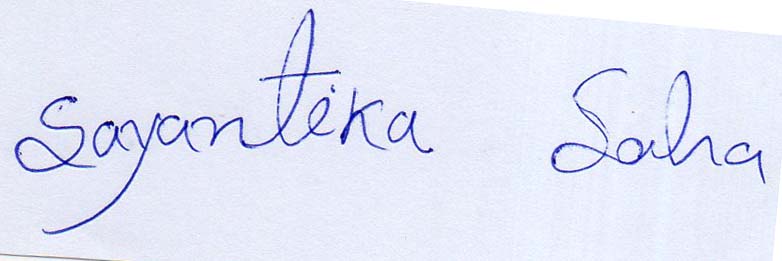 Sayantika Saha